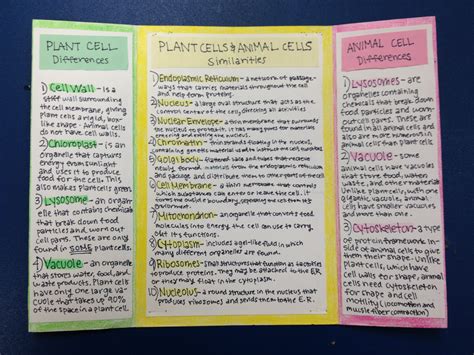 PLANT CELL
Differences
1) Cell Wall - is a
stiff wall surrounding
the cell membrane, giving
plant cells a rigid, box-
like shape. Animal cells
do not have cell walls.
2) Chloroplast - is an
organelle that captures
energy from sunlight
and uses it to produce
food for the cell. This
also makes plant cells green.
3) Lysosome - an organ-
elle that contains chemicals
that break down food
particles and worn out
cell parts. These are only
found in SOME plant cells.
4) Vacuole - an organelle
that stores water, food, and
waste products. Plant cells
have only one large va-
cuole that takes up 90%
of the space in a plant cell.
PLANT CELLS & ANIMAL CELLS
Similarities
1) Endoplasmic Reticulum - a network of passage-
ways that carries materials throughout the cell
and help form proteins.
2) Nucleus - a large oval structure that acts as the
control center of the cell, directing all activities
3) Nuclear Envelope - thin membrane that surrounds
the nucleus to protect it. It has many pores for materials
entering and exiting the nucleus.
4) Chromatin - thin strands floating in the nucleus,
containing genetic material used to instruct the cell's functions
5) Golgi body - flattened sacs and tubes that receive
newly formed materials from the endoplasmic reticulum
and package and distribute them to other parts of the cell
6) Cell Membrane - a thin membrane that controls
which substances can enter or leave the cell. It
forms the outside boundary, separating the cell from its
environment.
7) Mitochondrion - an organelle that converts food
molecules into energy the cell can use to carry
out its functions.
8) Cytoplasm - includes a gel-like fluid in which
many different organelles are found.
9) Ribosomes - small structures that function as factories
to produce proteins. They may be attached to the ER
or they may float in the cytoplasm.
10) Nucleolus - a round structure in the nucleus that
produces ribosomes and sends them to the E.R.
ANIMAL CELL
Differences
1) Lysosomes - are
organelles containing
chemicals that break down
food particles and worn
out cell parts. These are
found in all animal cells and
also are more numerous in
animal cells than plant cells.
2) Vacuole - some
animal cells have vacuoles
that store food, water,
waste, and other materials.
Unlike plant cells, with one
gigantic vacuole, animal
cells have smaller vacuoles
and more than one.
3) Cytoskeleton - a type
of protein framework in-
side of animal cells to give
them their shape. Unlike
plant cells, which have
cell walls for shape, animal
cells need cytoskeleton
for shape and cell
motility (locomotion and
muscle fiber contraction)